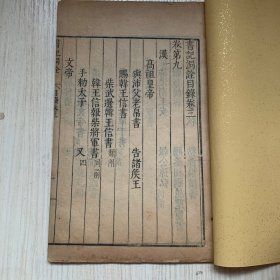 書記洞詮目錄卷二
卷第九
漢
高祖皇帝
與沛父老帛書 告諸侯王
賜韓王信書
柴武遺韓王信書
韓王信報柴將軍書
文帝
手勅太子 又四